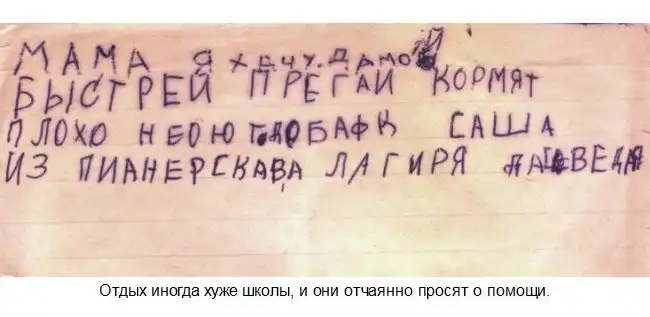 МАМА Я ХЕЧУ.ДАМОЙ
БЫСТРЕЙ ПРЕГАЙ КОРМЯТ
ПЛОХО НЕОЮТ САША
ИЗ ПИАНЕРСКАВА ЛАГИРЯ
Отдых иногда хуже школы, и они отчаянно просят о помощи.